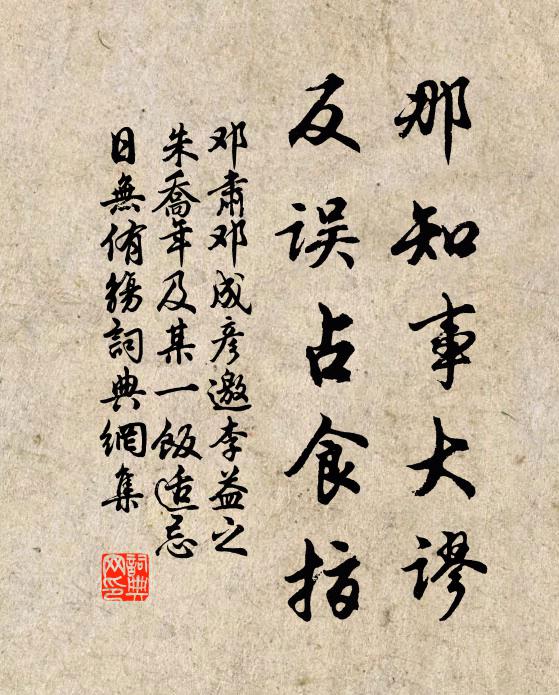 那知事大谬
反误占食指
邓肃邓成彦邀李益之
朱喬年及某一飯适忌
日無侑觴詞典網集
詞典
网印